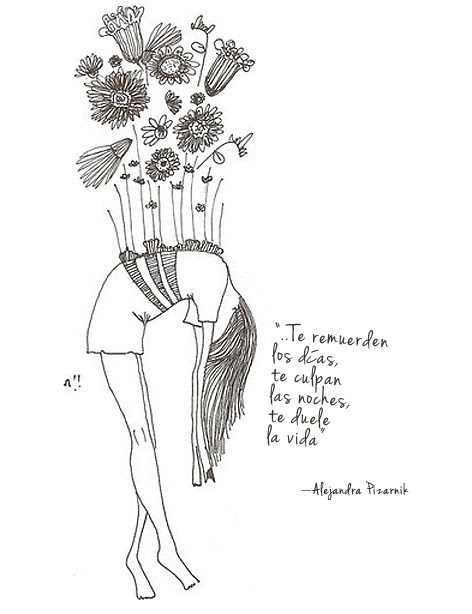 "..Te remuerden
los días,
te culpan
las noches,
te duele
la vida"
—Alejandra Pizarnik